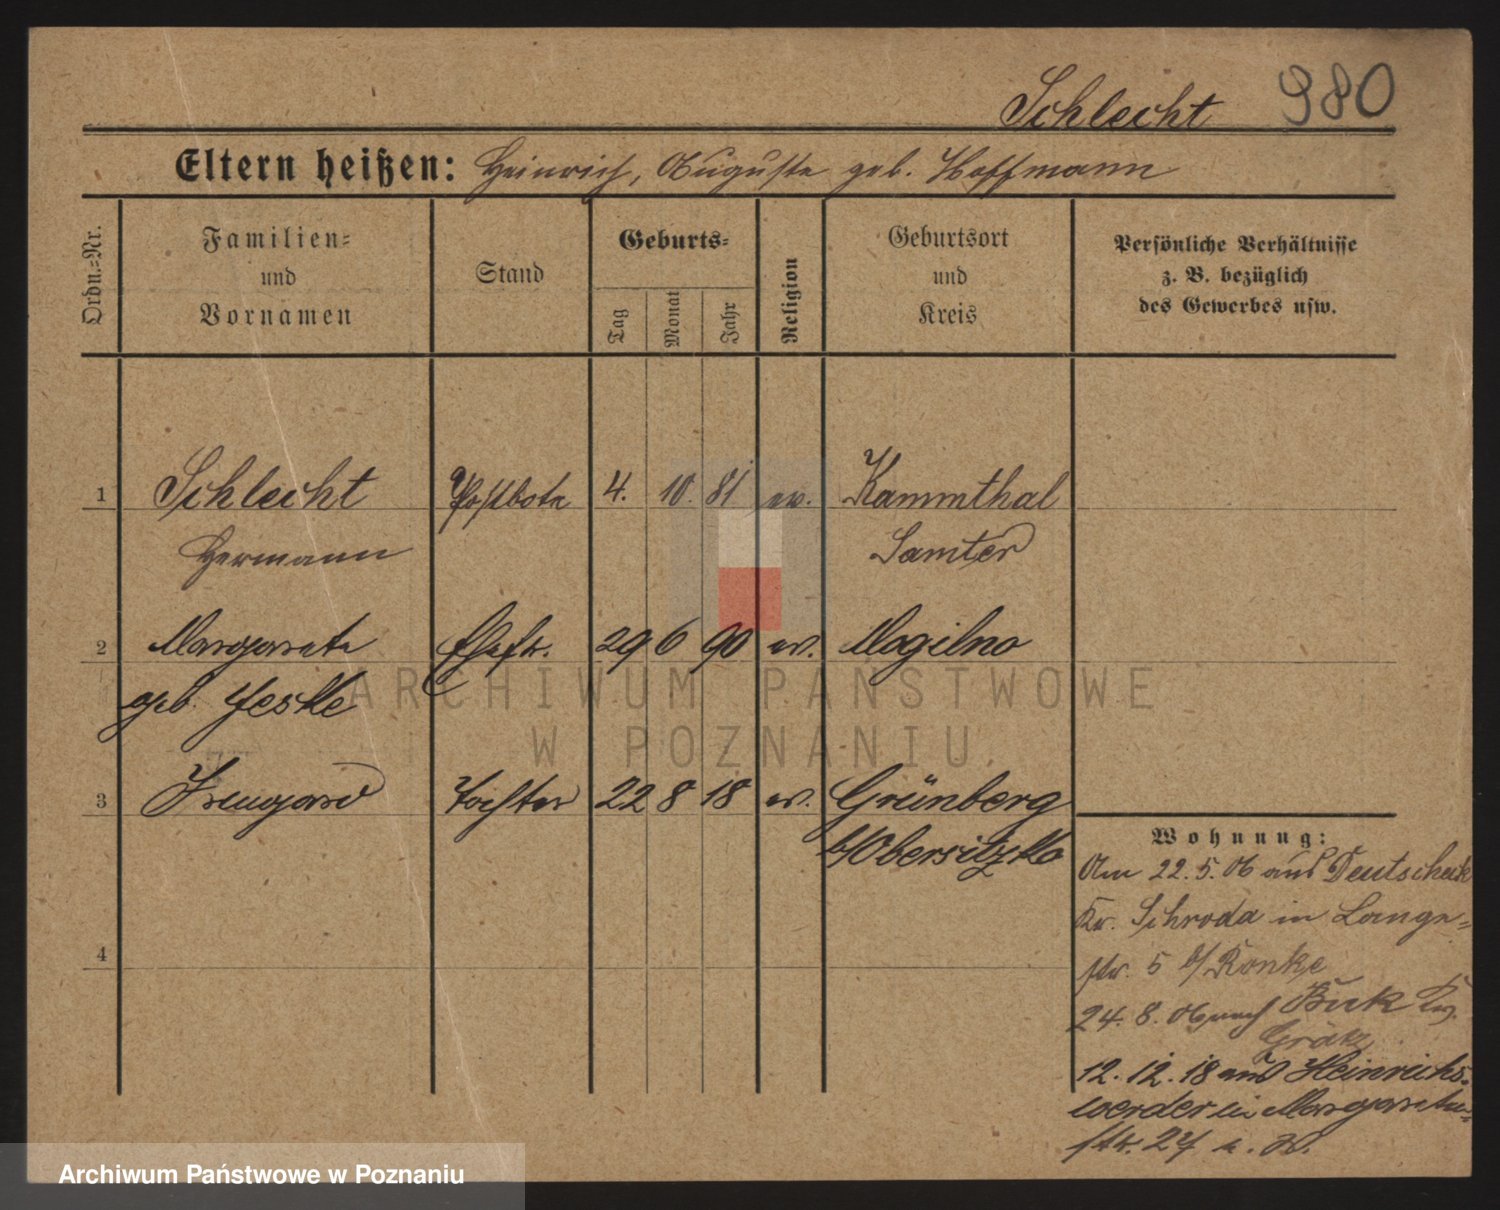 Schlecht 980
Eltern heißen: Heinrich, Auguste geb. Hoffmann
Ordn.-Nr.
Familien- und Vornamen
Stand
Geburts-
Tag
Monat
Jahr
Religion
Geburtsort und Kreis
Persönliche Verhältnisse z. B. bezüglich des Gewerbes usw.
1 Schlecht Postbote 4. 10. 81 ev. Kammthal
Hermann Samter
2 Margarete Ehefr. 29 6 90 ev. Mogilno
geb. Jeske
3 Irmgard Tochter 22 8 18 ev. Grünberg
b/Obersitzko
4
Wohnung:
Am 22. 5. 06 aus Deutscheck
Kr. Schroda in Lange-
str. 5 b/ Ronke
24. 8. 06 nach Buk Kr.
Grätz
12. 12. 18 aus Heinrichs-
werder in Margareten-
str. 27
ARCHIWUM PAŃSTWOWE
W POZNANIU
Archiwum Państwowe w Poznaniu